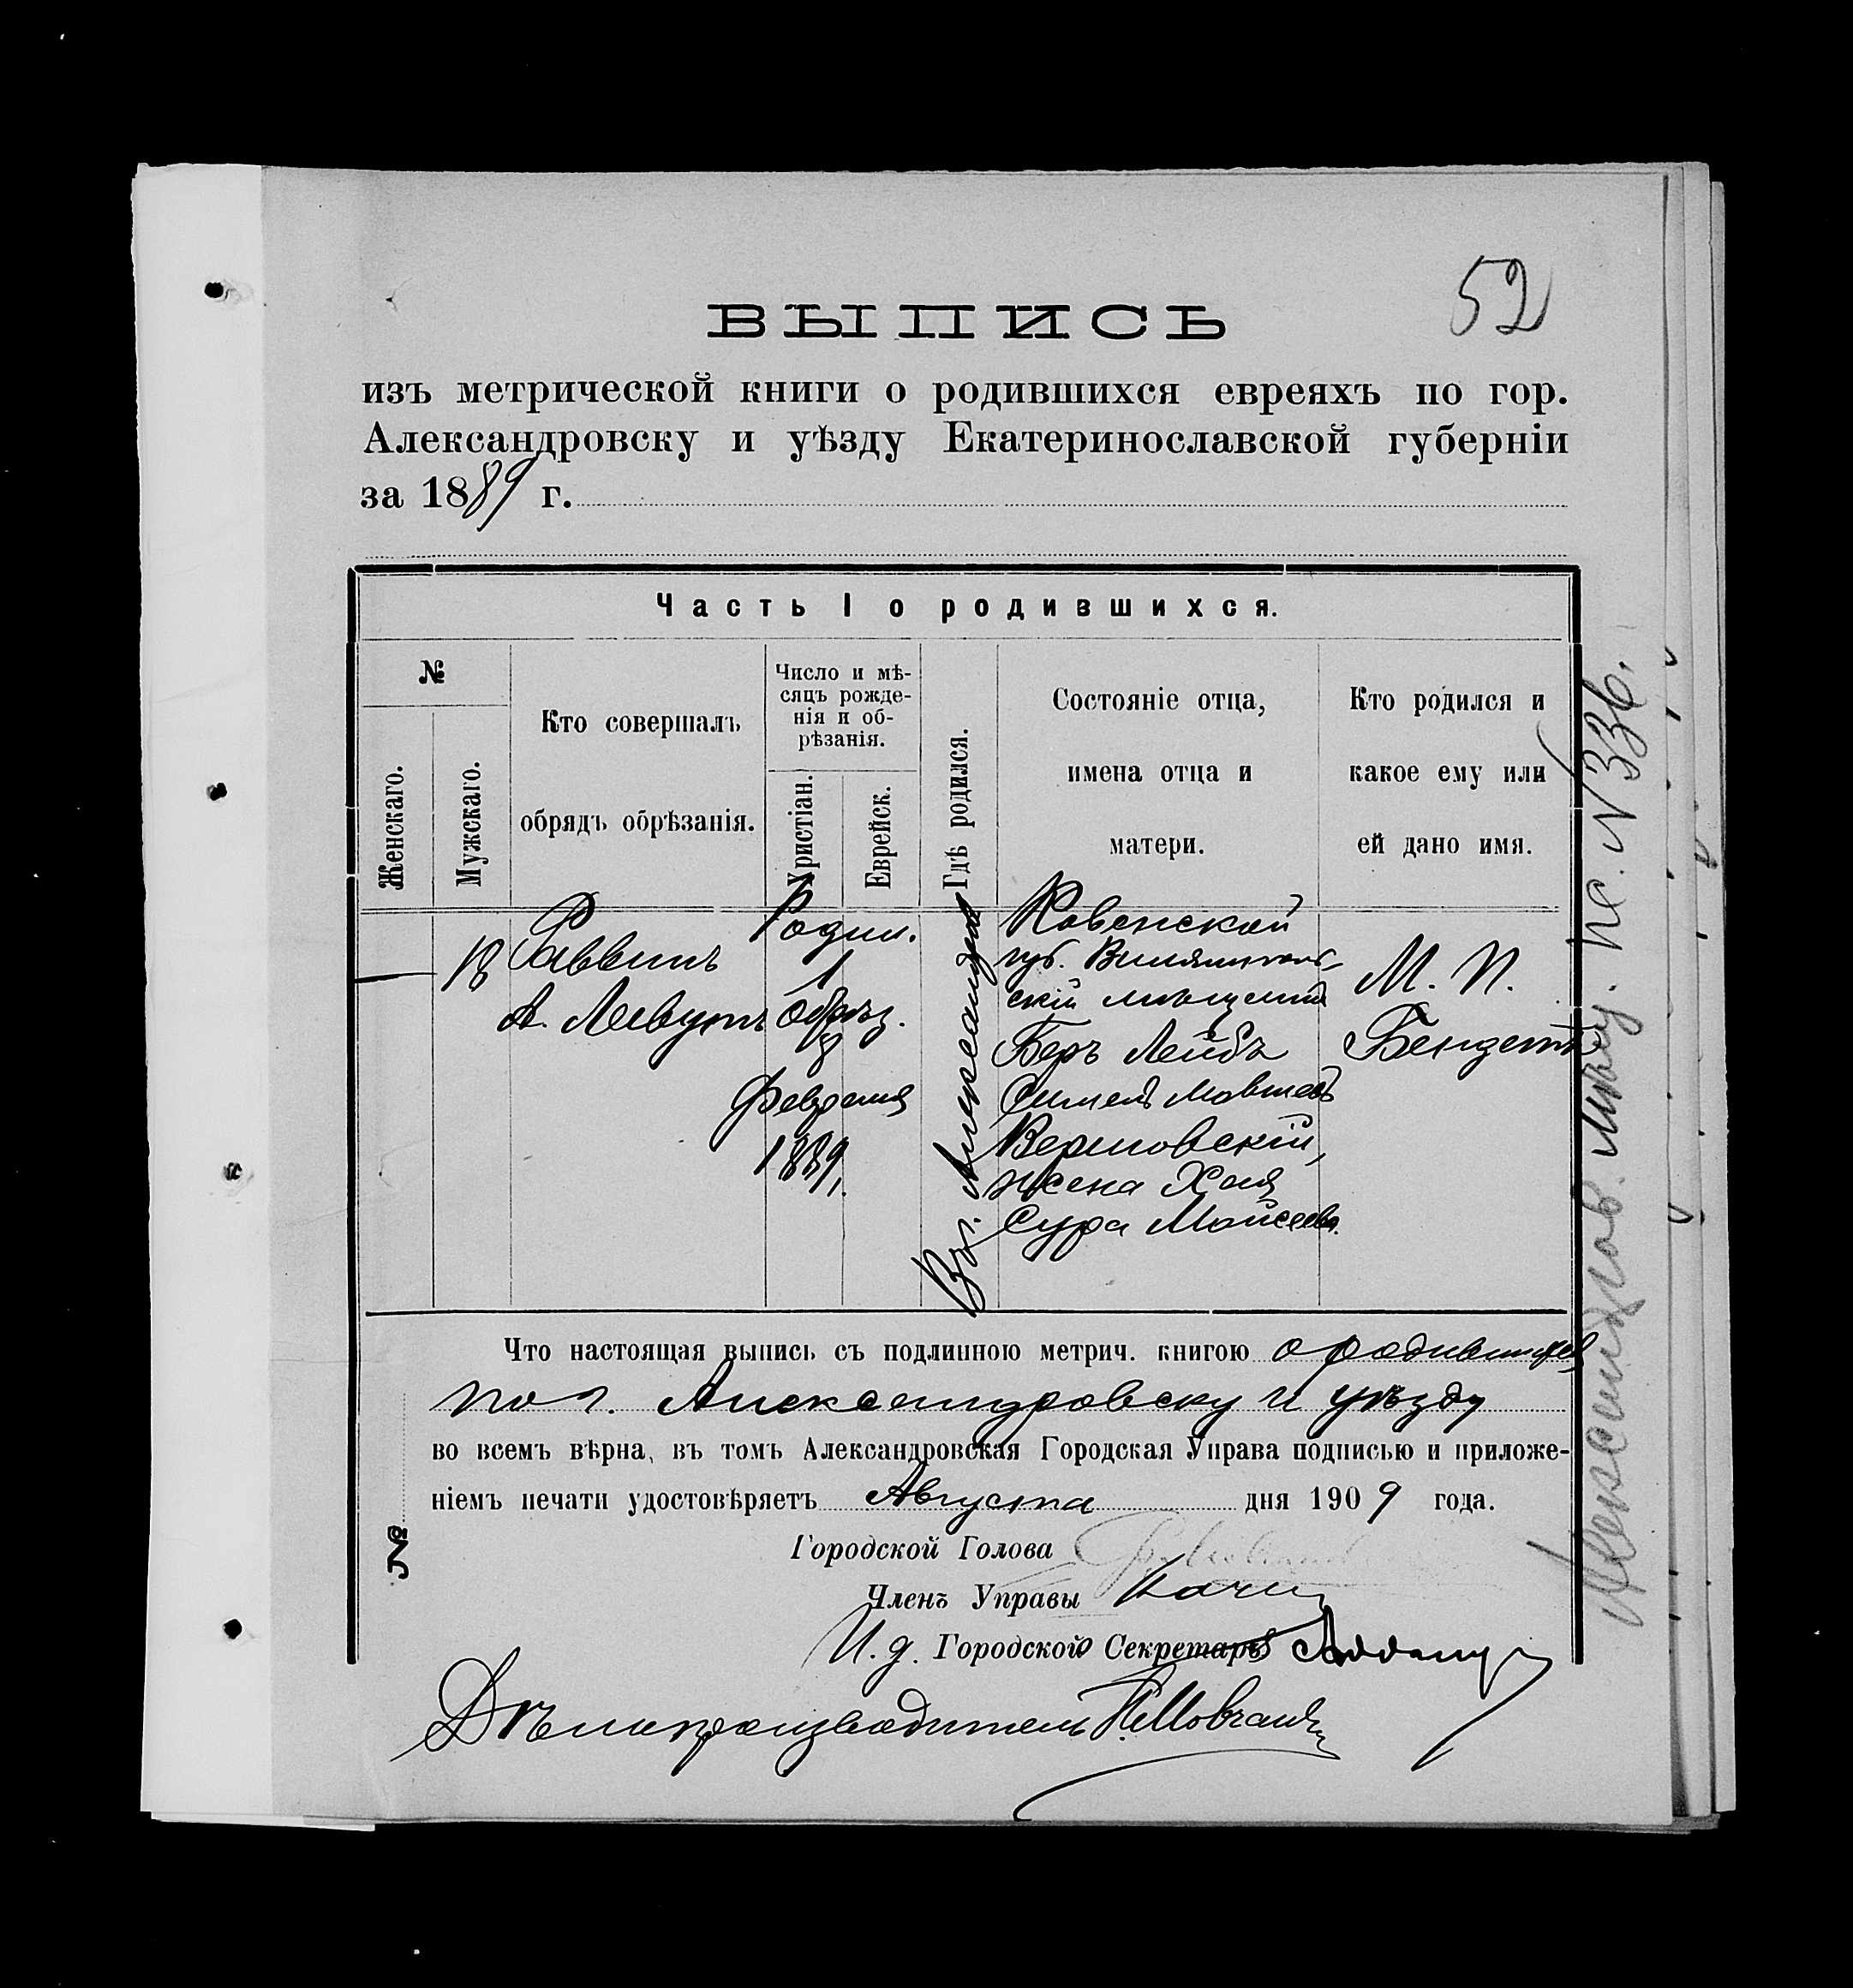 52
ВЫПИСЬ
изъ метрической книги о родившихся евреяхъ по гор.
Александровску и уѣзду Екатеринославской губерніи
за 1889 г.
Часть I о родившихся.
№
Женскаго.
Мужскаго.
Кто совершалъ
обрядъ обрѣзанія.
Число и мѣ-
сяцъ рожде-
нія и об-
рѣзанія.
Христіан.
Еврейск.
Гдѣ родился.
Состояніе отца,
имена отца и
матери.
Кто родился и
какое ему или
ей дано имя.
18
Раввинъ
А. Левутъ
Родил.
1
Обрѣз.
8
Февраля
1889.
Въ г. Александров
Ковенской
губ.
скій мѣщанинъ
Беръ Лейбъ
Мовшевъ
жена Хая
Сура Мойсеева.
М. П.
Бендетъ
Что настоящая выпись съ подлинною метрич. книгою о родившихся
по г. Александровску и уѣзду
во всемъ вѣрна, въ томъ Александровская Городская Управа подписью и приложе-
ніемъ печати удостовѣряетъ Августа дня 1909 года.
№
Городской Голова
Членъ Управы
И. д. Городского Секретаря
Дѣлопроизводитель Мовчанъ
Александров. мѣщ. пс. N 336.